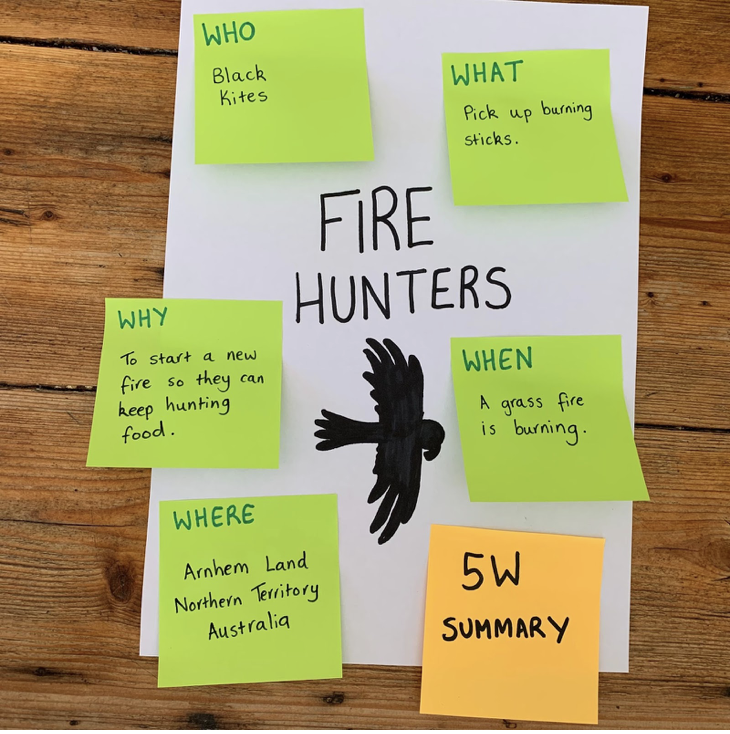 WHO
Black
Kites
WHAT
Pick up burning
sticks.
FIRE
HUNTERS
WHY
To start a new
fire so they can
keep hunting
food.
WHEN
A grass fire
is burning.
WHERE
Arnhem Land
Northern Territory
Australia
5W
SUMMARY